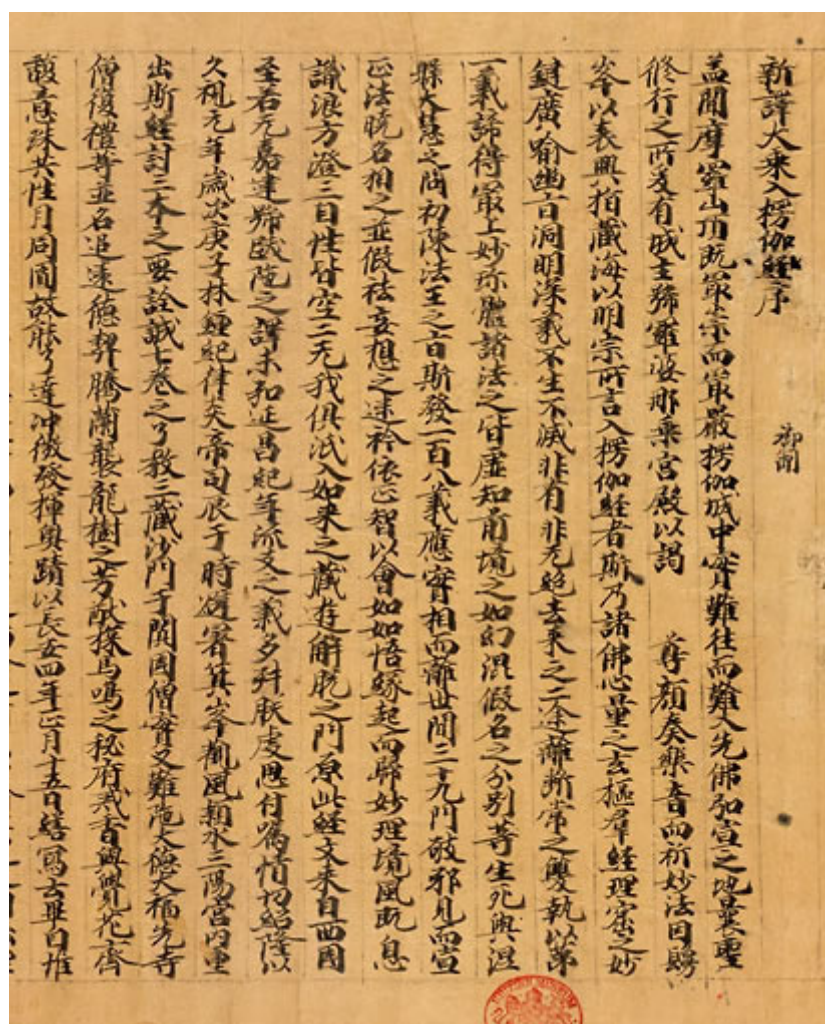 新譯大乘入楞伽經序
御制
蓋聞摩羅山頂既最崇而最嚴楞伽城中實難往而難入先佛弘宣之地曩聖
修行之所爰有城主號羅婆那乘宮殿以謁　尊顏奏樂音而祈妙法因鬘
峯以表興指藏海以明宗所言入楞伽經者斯乃諸佛心量之玄樞群經理窟之妙
鍵廣喻幽旨洞明深義不生不滅非有非无絕去來之二途離斷常之雙執以第
一義諦得最上妙珍體諸法之皆虛知前境之如幻混假名之分別等生死與涅
槃大慧之問初陳法王之旨斯發一百八義應實相而離世間三十九門破邪見而宣
正法曉名相之並假祛妄想之迷衿依正智以會如如悟緣起而歸妙理境風既息
識浪方澄三自性皆空二无我俱泯入如來之藏遊解脫之門原此經文來自西國
至若元嘉建號跋陀之譯未弘延昌紀年流支之義多舛朕虔思付囑情切紹隆以
久視元年歲次庚子林鍾紀律炎帝司辰于時避暑箕峯觀風潁水三陽宮內重
出斯經討三本之要詮誠七卷之了教三藏沙門于闐國僧實叉難陀大德大福先寺
僧復禮等並名追遠德契騰蘭襲龍樹之芳猷探馬鳴之秘府戒香與覺花齊
馥意珠共性月同圓故能了達沖微發揮奧賾以長安四年正月十五日繕寫云畢自惟